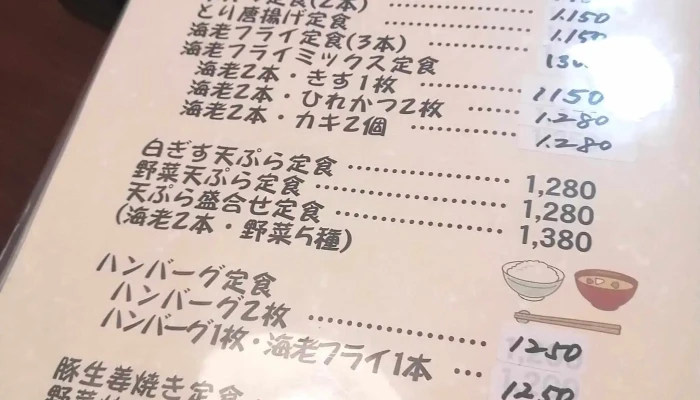 定食(2本)
とり唐揚げ定食 ………… 1.150
海老フライ定食(3本) ………… 1.150
海老フライミックス定食
海老2本・きす1枚 ………… 1150
海老2本・ひれかつ2枚 …… 1.280
海老2本・カキ2個 ………… 1.280
白ぎす天ぷら定食 ……………… 1,280
野菜天ぷら定食 ………………… 1,280
天ぷら盛合せ定食 ……………… 1,380
(海老2本・野菜5種)
ハンバーグ定食
ハンバーグ2枚 ……………… 1250
ハンバーグ1枚・海老フライ1本 … 1250
豚生姜焼き定食